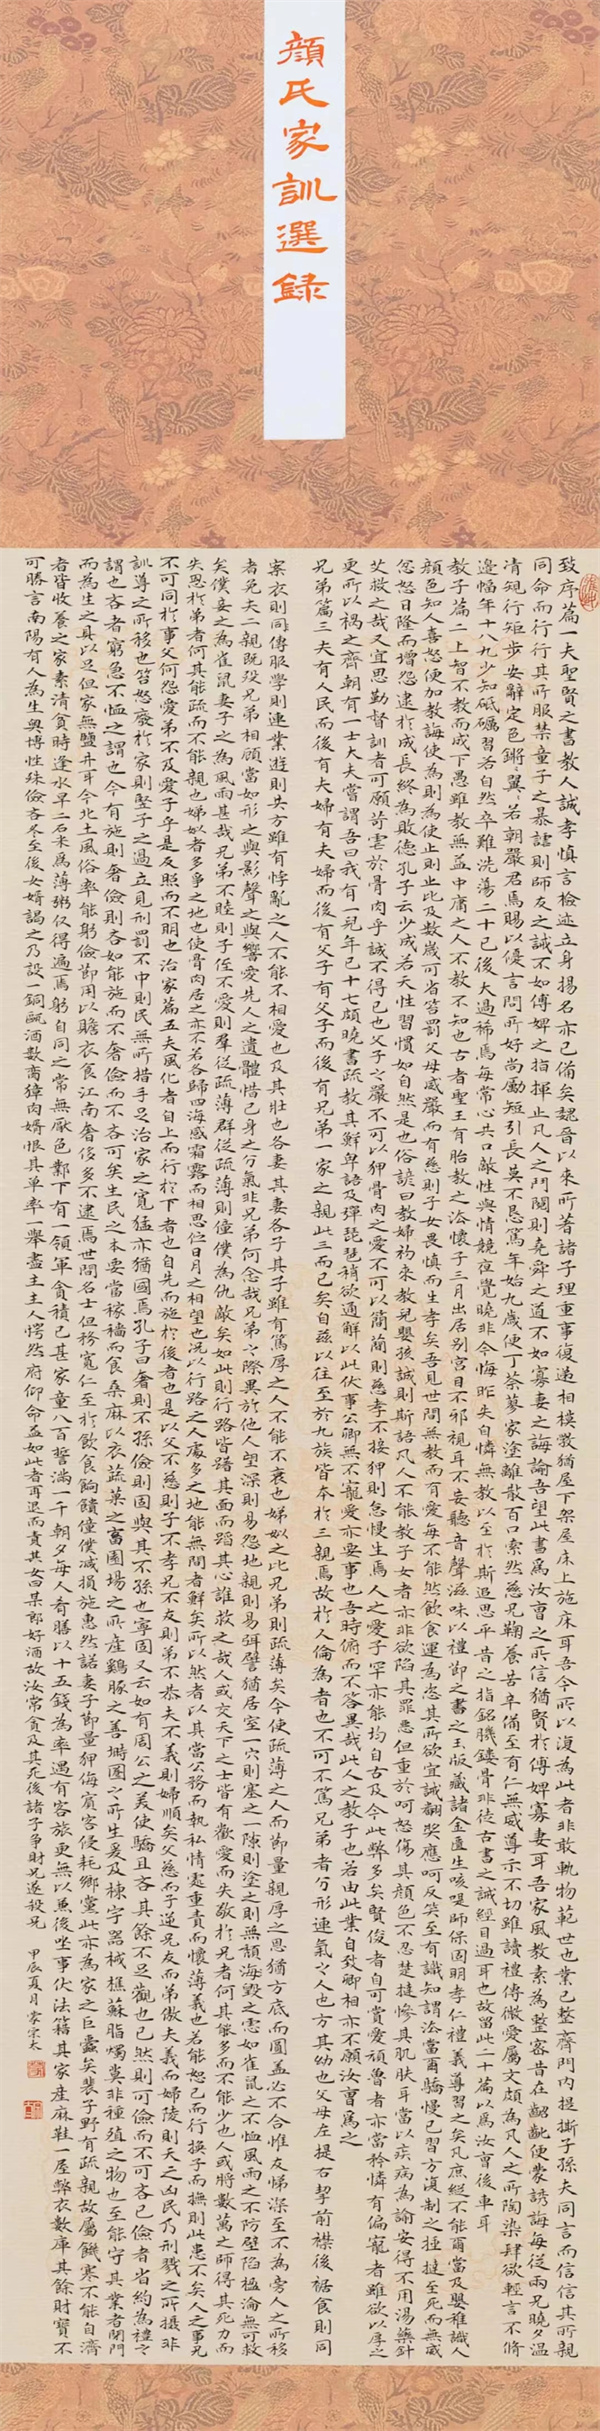 顏氏家訓選錄
致序篇一夫聖賢之書教人誠孝慎言檢迹立身揚名亦已備矣魏晉以來所著諸子理重事復遞相模斆猶屋下架屋床上施床耳吾今所以復為此者非敢軌物範世也業已整齊門內提撕子孫夫同言而信信其所親
同命而行行其所服禁童子之暴謔則師友之誡不如傅婢之指揮止凡人之鬥鬩則堯舜之道不如寡妻之誨諭吾望此書為汝曹之所信猶賢於傅婢寡妻耳吾家風教素為整密昔在齠齔便蒙誘誨每從兩兄曉夕溫
凊規行矩步安辭定色鏘々翼々若朝嚴君焉賜以優言問所好尚勵短引長莫不懇篤年始九歲便丁荼蓼家塗離散百口索然慈兄鞠養苦辛備至有仁無威導示不切雖讀禮傳微愛屬文頗為凡人之所陶染肆欲輕言不脩
邊幅年十八九少知砥礪習若自然卒難洗蕩二十已後大過稀焉每常心共口敵性與情競夜覺曉非今悔昨失自憐無教以至於斯追思平昔之指銘肌鏤骨非徒古書之誡經目過耳也故留此二十篇以為汝曹後車耳
教子篇二上智不教而成下愚雖教無益中庸之人不教不知也古者聖王有胎教之法懷子三月出居別宮目不邪視耳不妄聽音聲滋味以禮節之書之玉版藏諸金匱生咳㖷師保固明孝仁禮義導習之矣凡庶縱不能爾當及嬰稚識人
顏色知人喜怒便加教誨使為則為使止則止比及數歲可省笞罰父母威嚴而有慈則子女畏慎而生孝矣吾見世間無教而有愛每不能然飲食運為恣其所欲宜誡翻獎應呵反笑至有識知謂法當爾驕慢已習方復制之捶撻至死而無威
忿怒日隆而增怨逮於成長終為敗德孔子云少成若天性習慣如自然是也俗諺曰教婦初來教兒嬰孩誠則斯語凡人不能教子女者亦非欲陷其罪惡但重於呵怒傷其顏色不忍楚撻慘其肌膚耳當以疾病為諭安得不用湯藥針
艾救之哉又宜思勤督訓者可願苛虐於骨肉乎誠不得已也父子之嚴不可以狎骨肉之愛不可以簡簡則慈孝不接狎則怠慢生焉人之愛子罕亦能均自古及今此弊多矣賢俊者自可賞愛頑魯者亦當矜憐有偏寵者雖欲以厚之
更所以禍之齊朝有一士大夫嘗謂吾曰我有一兒年已十七頗曉書疏教其鮮卑語及彈琵琶稍欲通解以此伏事公卿無不寵愛亦要事也吾時俯而不答異哉此人之教子也若由此業自致卿相亦不願汝曹為之
兄弟篇三夫有人民而後有夫婦有夫婦而後有父子有父子而後有兄弟一家之親此三而已矣自茲以往至於九族皆本於三親焉故於人倫為者也不可不篤兄弟者分形連氣之人也方其幼也父母左提右挈前襟後裾食則同
案衣則同傳服學則連業遊則共方雖有悖亂之人不能不相愛也及其壯也各妻其妻各子其子雖有篤厚之人不能不衰也娣姒之比兄弟則疏薄矣今使疏薄之人而節量親厚之恩猶方底而圓蓋必不合惟友悌深至不為旁人之所移
者免夫二親既歿兄弟相顧當如形之與影聲之與響愛先人之遺體惜己身之分氣非兄弟何念哉兄弟之際異於他人望深則易怨地親則易弭譬猶居室一穴則塞之一隙則塗之則無頹海毀之慮如雀鼠之不恤風雨之不防壁陷楹淪無可救
矣僕妾之為雀鼠妻子之為風雨甚哉兄弟不睦則子侄不愛則群從疏薄群從疏薄則僮僕為仇敵矣如此則行路皆踖其面而蹈其心誰救之哉人或交天下之士皆有歡愛而失敬於兄者何其能多而不能少也人或將數萬之師得其死力而
失恩於弟者何其能疏而不能親也娣姒者多爭之地也使骨肉居之亦不若各歸四海感霜露而相思佇日月之相望也況以行路之人處多之地能無間者鮮矣所以然者以其當公務而執私情處重責而懷薄義也若能恕己而行換子而撫則此患不矣人之事兄
不可同於事父何怨愛弟不及愛子乎是反照而不明也治家篇五夫風化者自上而行於下者也自先而施於後者也是以父不慈則子不孝兄不友則弟不恭夫不義則婦順矣父慈而子逆兄友而弟傲夫義而婦陵則天之凶民乃刑戮之所攝非
訓導之所移也笞怒廢於家則豎子之過立見刑罰不中則民無所措手足治家之寬猛亦猶國焉孔子曰奢則不孫儉則固與其不孫也寧固又云如有周公之美使驕且吝其餘不足觀也已然則可儉而不可吝已儉者省約為禮之
謂也吝者窮急不恤之謂也今有施則奢儉則吝如能施而不奢儉而不吝可矣生民之本要當稼穡而食桑麻以衣蔬菜之畜園場之所產雞豚之善塒圈之所生爰及棟宇器械樵蘇脂燭莫非種殖之物也至能守其業者閉門
而為生之具以足但家無鹽井耳今北土風俗率能躬儉節用以贍衣食江南奢侈多不逮焉世間名士但務寬仁至於飲食餉饋僮僕減損施惠然諾妻子節量狎侮賓客侵耗鄉黨此亦為家之巨蠹矣裴子野有疏親故屬饑寒不能自濟
者皆收養之家素清貧時逢水旱二石米為薄粥僅得遍焉躬自同之常無厭色鄴下有一領軍貪積已甚家童八百誓滿一千朝夕每人肴膳以十五錢為率遇有客旅更無以兼後坐事伏法籍其家產麻鞋一屋弊衣數庫其餘財寶不
可勝言南陽有人為生奧博性殊儉吝冬至後女婿謁之乃設一銅甌酒數臠獐肉婿恨其單率一舉盡主主人愕然府仰命益如此者再退而責其女曰某郎好酒故汝常貧及其死後諸子爭財兄遂殺兄 甲辰夏月